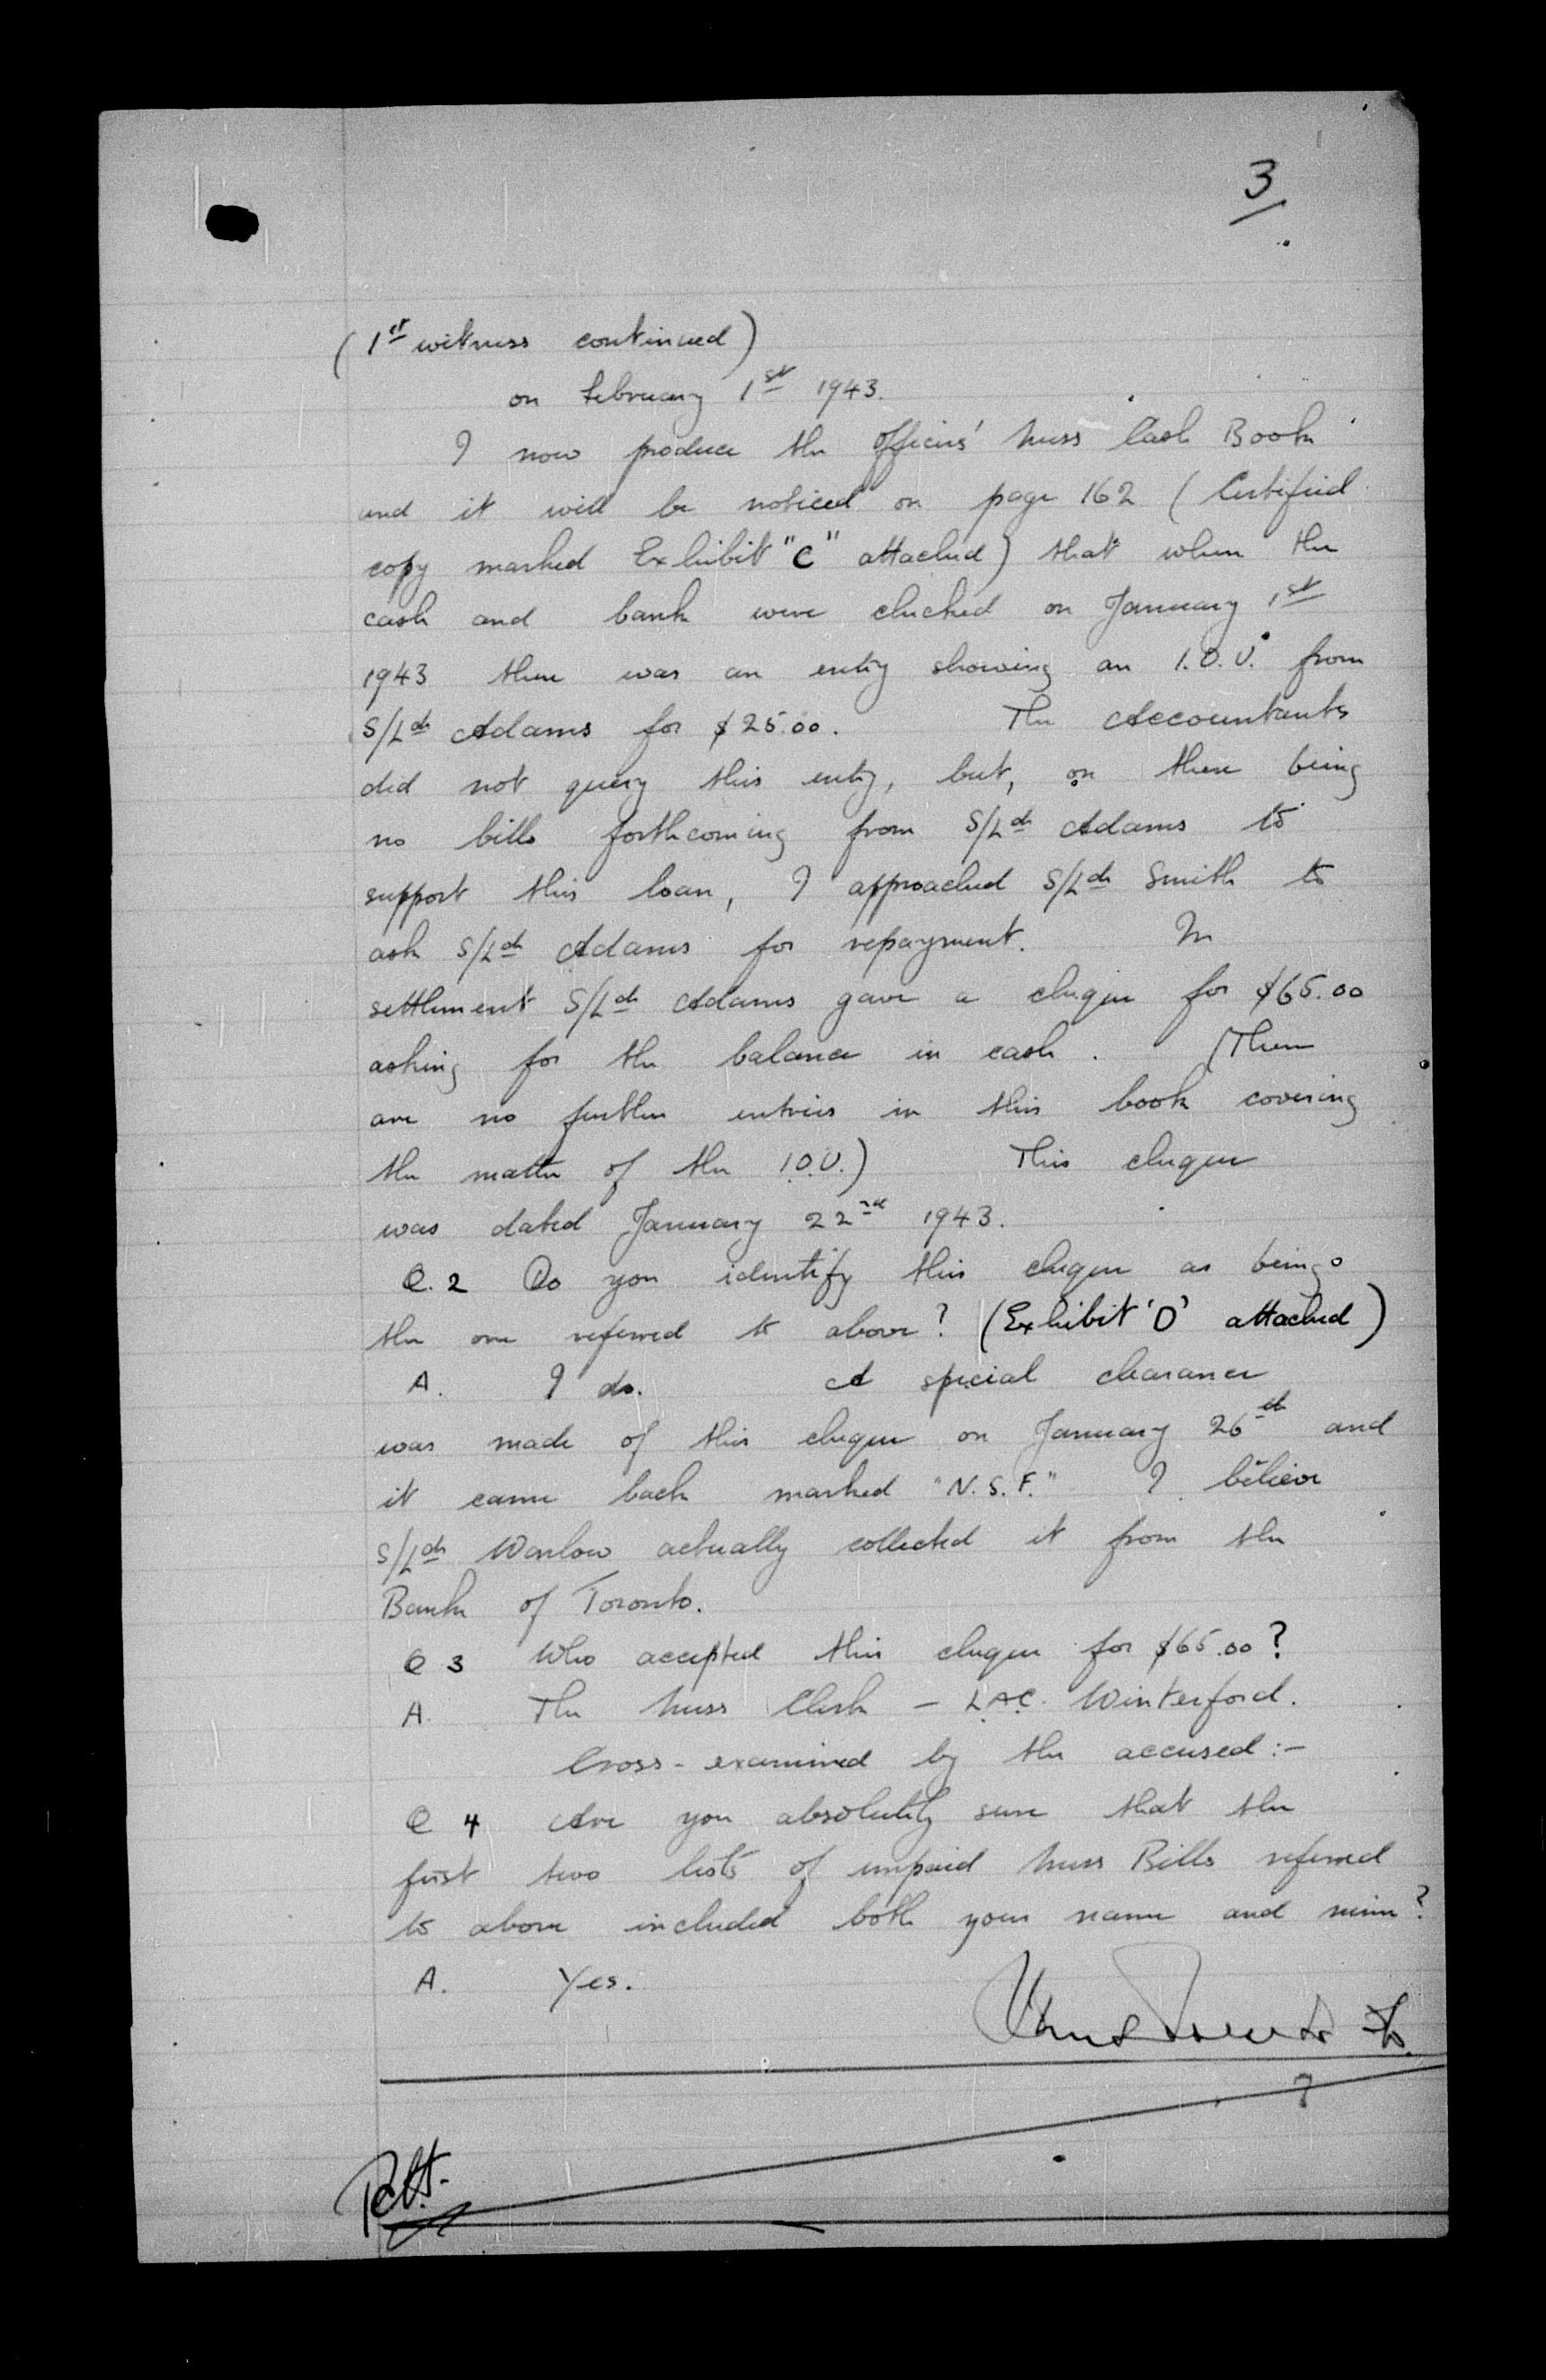 3
(1st witness continued)
on February 1st 1943.
I now produce the Officers' Mess Cash Book
and it will be noticed on page 162 (Certified
copy marked Exhibit "C" attached) that when the
cash and bank were checked on January 1st
1943 there was an entry showing an I.O.U. from
S/Ldr Adams for $25.00. The Accountants
did not query this entry, but, on there being
no bills forthcoming from S/Ldr Adams to
support this loan, I approached S/Ldr Smith to
ask S/Ldr Adams for repayment. In
settlement S/Ldr Adams gave a cheque for $65.00
asking for the balance in cash. (There
are no further entries in this book covering
the matter of the I.O.U.) This cheque
was dated January 22nd 1943.
Q.2 Do you identify this cheque as being
the one referred to above? (Exhibit 'D' attached)
A. I do. A special clearance
was made of this cheque on January 26th and
it came back marked "N.S.F." I believe
S/Ldr Warlow actually collected it from the
Bank of Toronto.
Q 3 Who accepted this cheque for $65.00?
A. The Mess Clerk - L.A.C. Winterford.
Cross-examined by the accused:-
Q 4 Are you absolutely sure that the
first two lists of unpaid Mess Bills referred
to above included both your name and mine?
A. Yes.